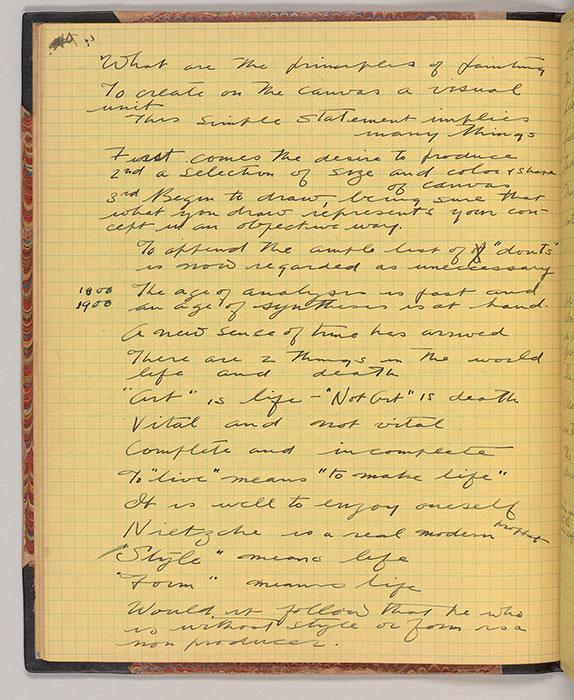 What are the principles of painting
To create on the canvas a visual
unit
This simple statement implies
many things
First comes the desire to produce
2nd a selection of size and color & shape
of canvas
3rd Begin to draw, being sure that
what you draw represents your con-
cept in an objective way.
To append the ample list of "donts"
is now regarded as unneccessary
1800 The age of analysis is past and
1900 an age of synthesis is at hand.
A new sense of time has arrived
There are 2 things in the world
life and death
"Art" is life - "Not Art" is death
Vital and not vital
Complete and incomplete
To "live" means "to make life"
It is well to enjoy oneself
Nietzche is a real modern prophet
"Style" means life
"Form" means life
Would it follow that he who
is without style or form is a
non producer.